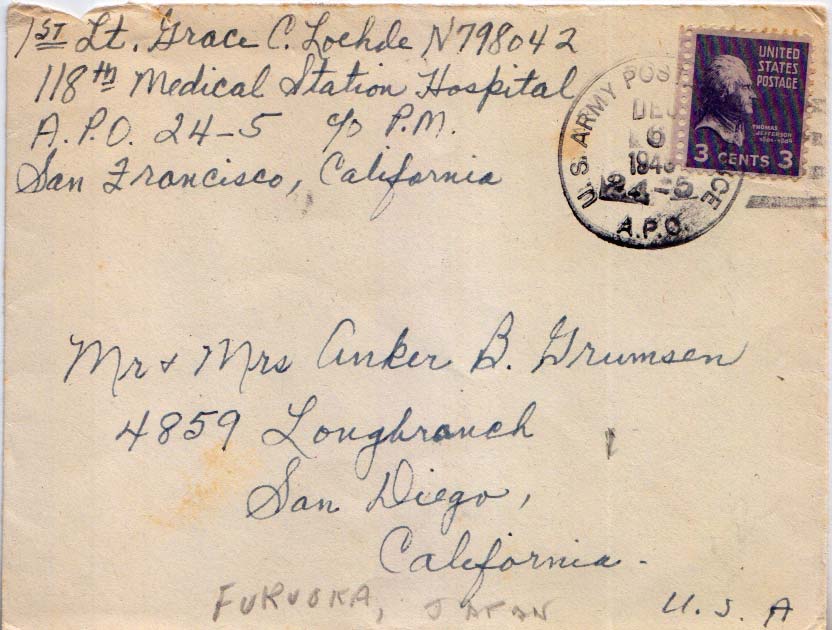 1ST Lt. Grace C. Loehde N798042
118th Medical Station Hospital
A.P.O. 24-5 c/o P.M.
San Francisco, California
U.S. ARMY POS
DEC
6
194
24-5
A.P.O.
UNITED
STATES
POSTAGE
THOMAS
JEFFERSON
3 CENTS 3
Mr + Mrs Anker B. Grumsen
4859 Longbranch
San Diego,
California.
U.S.A
FUKUOKA, JAPAN